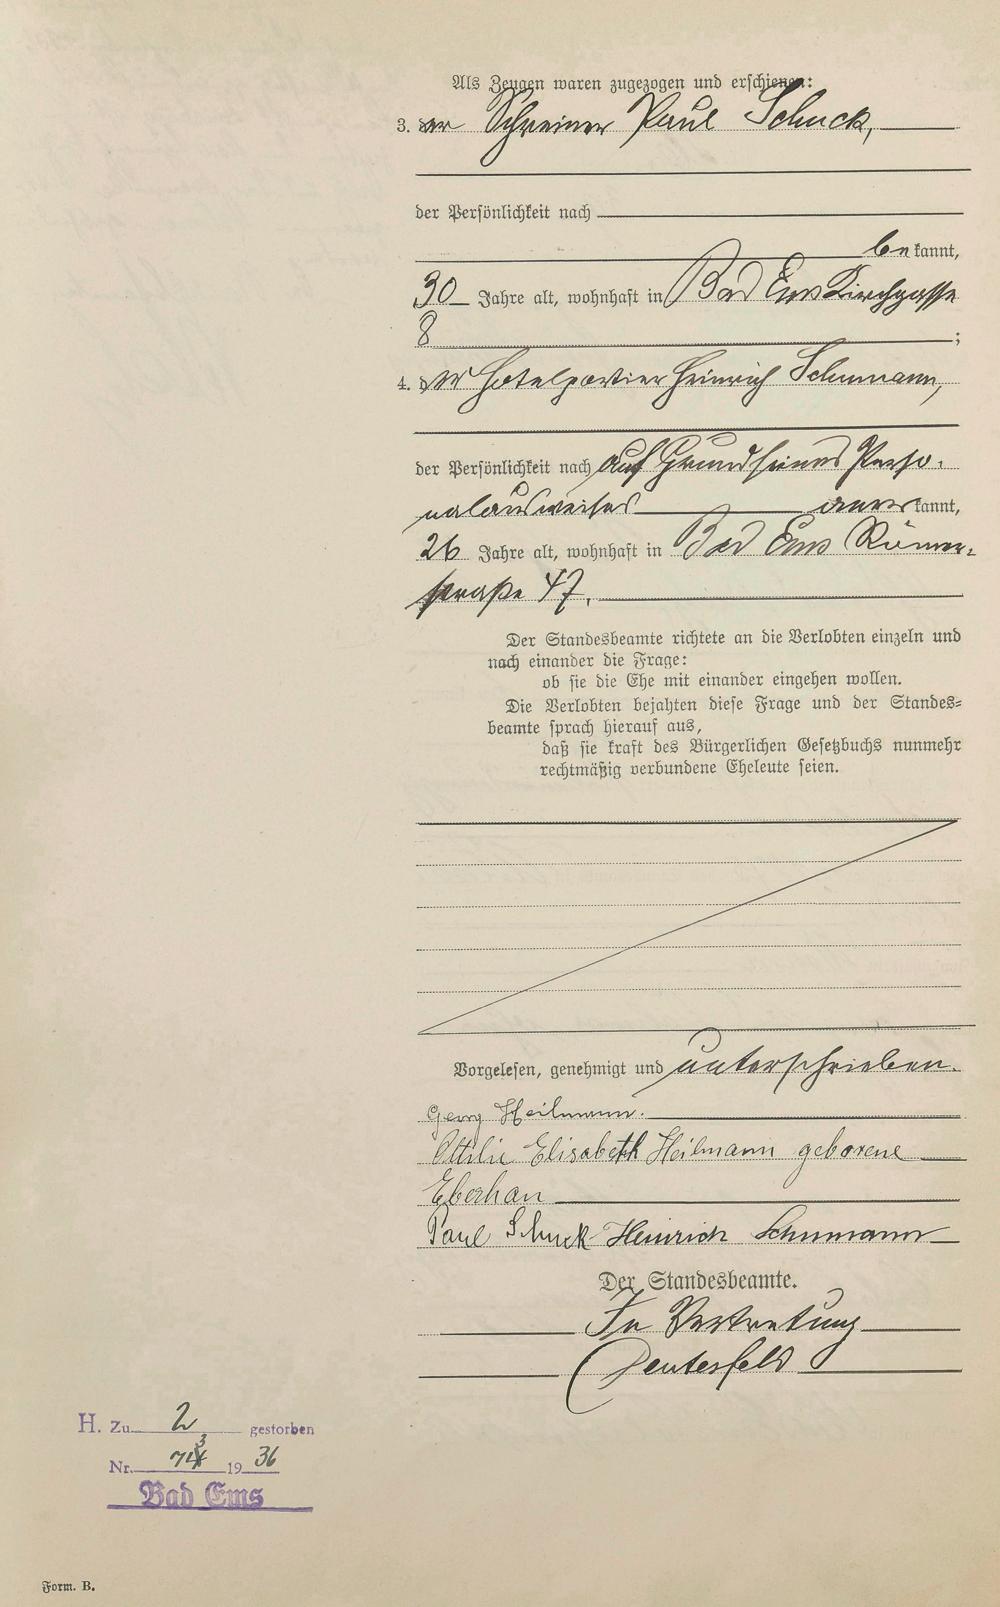 Als Zeugen waren zugezogen und erschienen:
3. der Schreiner Paul Schuck,
der Persönlichkeit nach
bekannt,
30 Jahre alt, wohnhaft in Bad Ems Kirchgasse
8 ;
4. der Hotelportier Heinrich Schumann,
der Persönlichkeit nach auf Grund seines Perso-
nalausweises anerkannt,
26 Jahre alt, wohnhaft in Bad Ems Römer-
straße 47.
Der Standesbeamte richtete an die Verlobten einzeln und
nach einander die Frage:
ob sie die Ehe mit einander eingehen wollen.
Die Verlobten bejahten diese Frage und der Standes-
beamte sprach hierauf aus,
daß sie kraft des Bürgerlichen Gesetzbuchs nunmehr
rechtmäßig verbundene Eheleute seien.
Vorgelesen, genehmigt und unterschrieben.
Georg Heilmann.
Ottilie Elisabeth Heilmann geborene
Eberhan
Paul Schuck Heinrich Schumann
Der Standesbeamte.
In Vertretung
H. Zu 2 gestorben
Nr. 19 36
Bad Ems
Form. B.